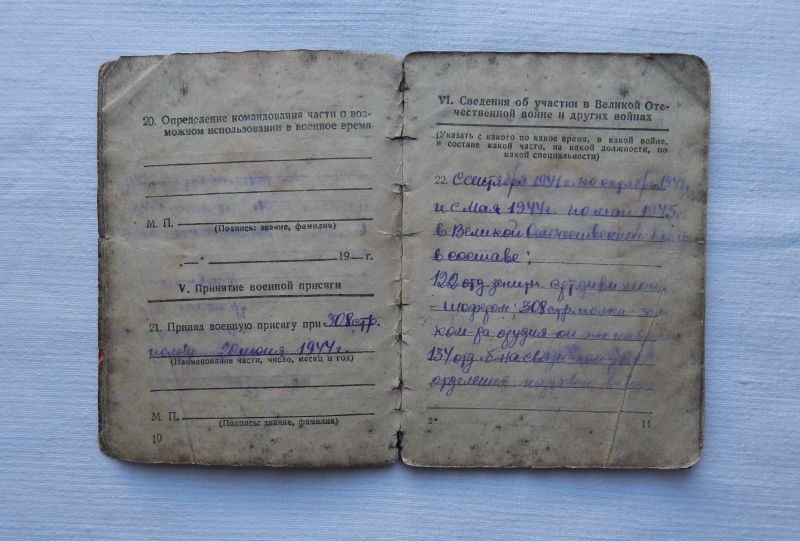 20. Определение командования части о воз-
можном использовании в военное время
М. П.
(Подпись: звание, фамилия)
„—“ 19—г.
V. Принятие военной присяги
21. Принял военную присягу при 308 стр.
полку 20 июня 1944г.
(Наименование части, число, месяц и год)
М. П.
(Подпись: звание, фамилия)
10
VI. Сведения об участии в Великой Оте-
чественной войне и других войнах
(Указать с какого по какое время, в какой войне,
в составе какой части, на какой должности, по
какой специальности)
22. С сентября 1941г. по октябрь 1941г.
и с мая 1944г. по май 1945г.
в Великой Отечественной войне
в составе:
122 отд. зенитн. арт. дивизиона
шофером; 308 стр. полка
ком-ра орудия он же наводчик
137 отд. б-на связи ком-ра
отделения
2* 11